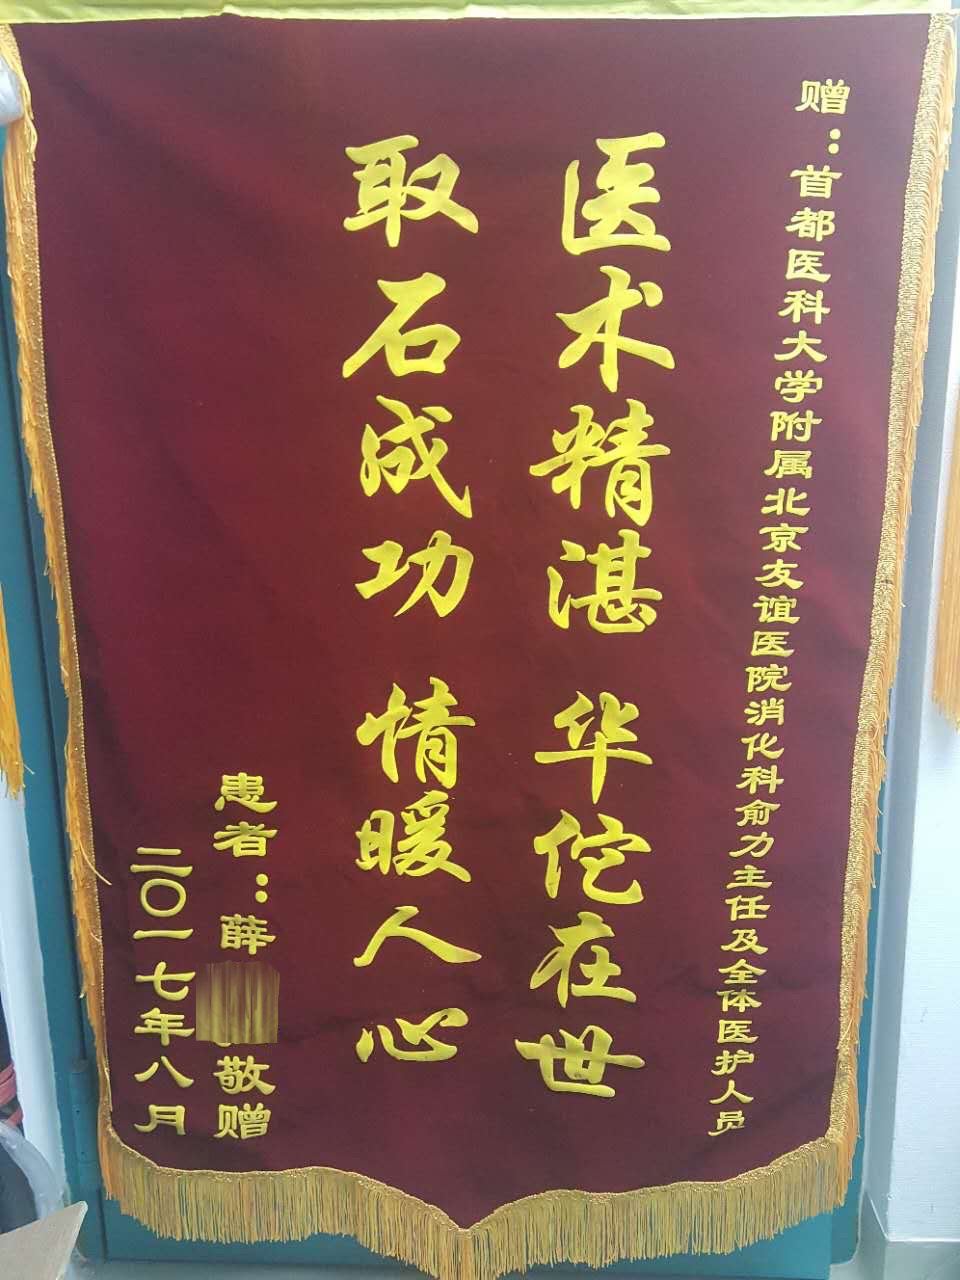 赠：首都医科大学附属北京友谊医院消化科俞力主任及全体医护人员
医术精湛 华佗在世
取石成功 情暖人心
患者：薛 敬赠
二〇一七年八月